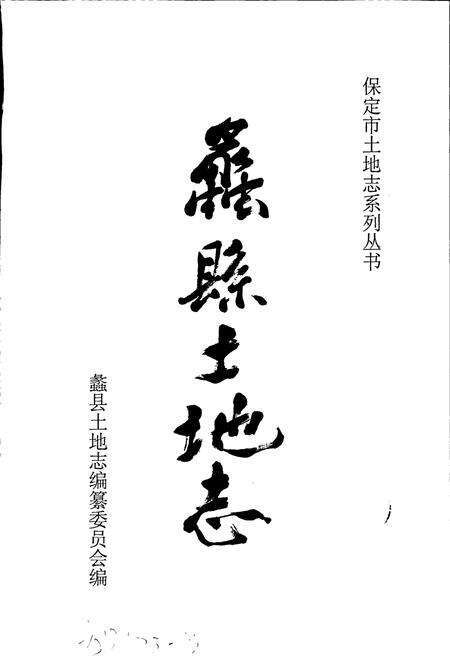 保定市土地志系列丛书
蠡縣土地志
蠡县土地志编纂委员会编